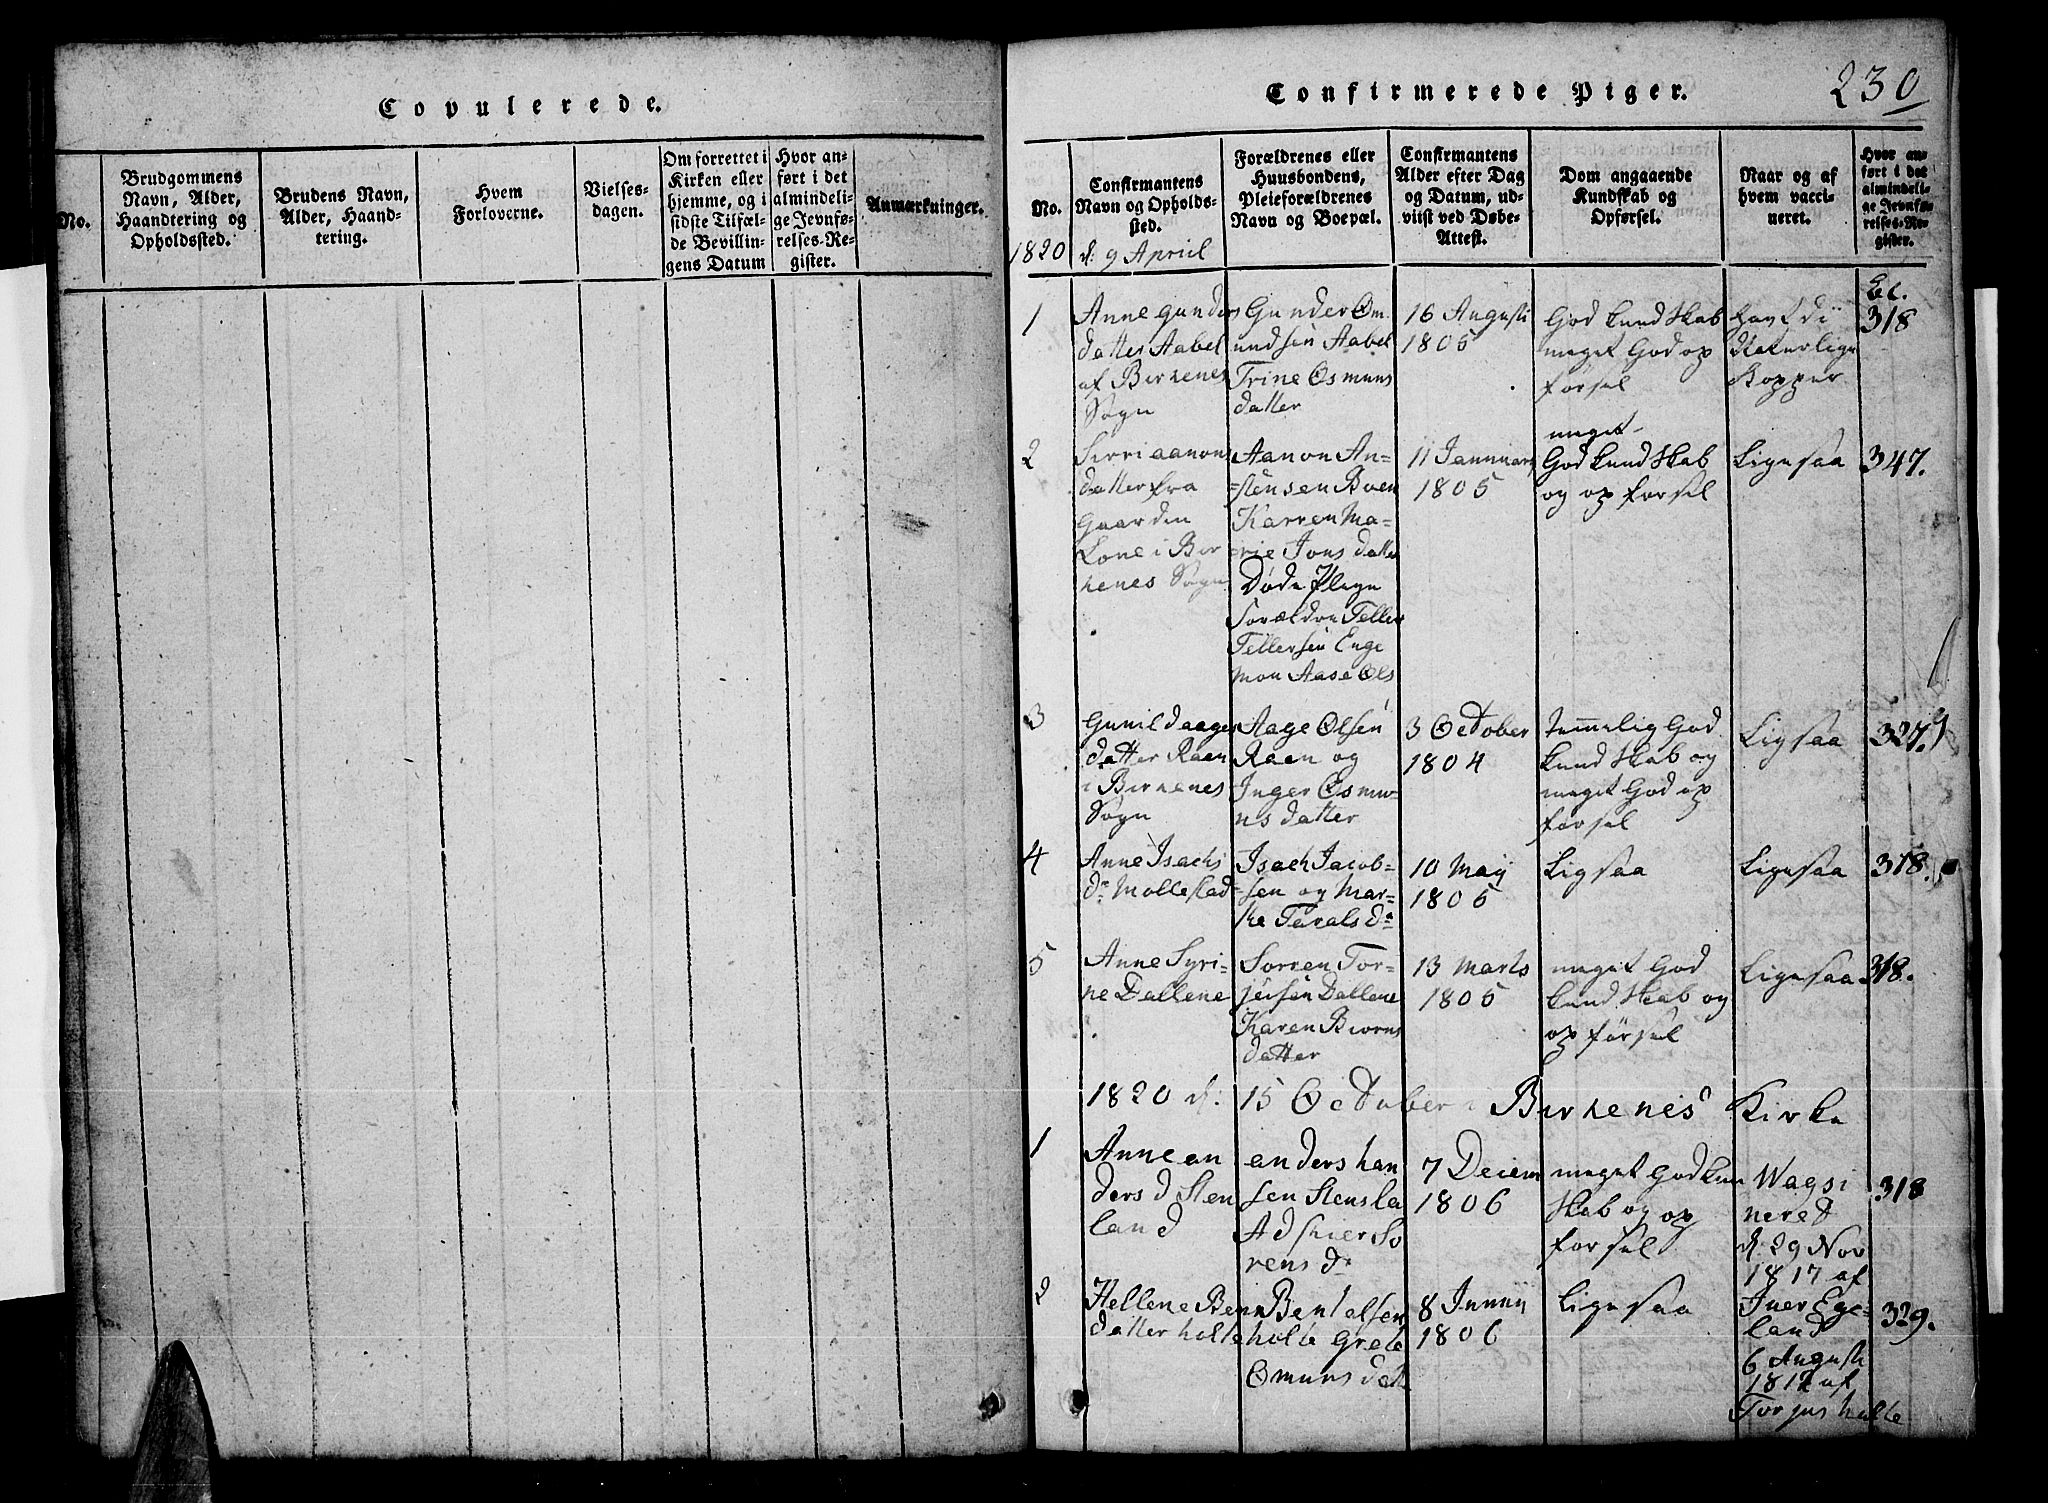 Copulerede.
No.
Brudgommens
Navn, Alder,
Haandtering og
Opholdssted.
Brudens Navn,
Alder, Haand-
tering.
Hvem
Forloverne.
Vielses-
dagen.
Om forrettet i
Kirken eller
hjemme, og i
sidste Tilfæl-
de Bevillin-
gens Datum
Hvor an-
ført i det
almindeli-
ge Jevnfø-
relses-Re-
gister.
Anmærkninger.
Confirmerede Piger.
230
No.
Confirmantens
Navn og Opholds-
sted.
Forældrenes eller
Huusbondens,
Pleieforældrenes
Navn og Boepæl.
Confirmantens
Alder efter Dag
og Datum, ud-
viist ved Døbe-
Attest.
Dom angaaende
Kundskab og
Opførsel.
Naar og af
hvem vacci-
neret.
Hvor an-
ført i det
almindeli-
ge Jevnfø-
relses-Re-
gister.
1820 d: 9 April
1
Anne gunders
datter Aabel
af Birkenes
Sogn
Gunder Om
undsen Aabel
Trine Osmuns
datter
16 Augusti
1805
God kundskab
meget God op
førsel
havt di
Naturlige
Kopper
318
2
Sirri aanons
datter fra
Gaarden
Lone i Bir
kenes Sogn
Aanon An-
stensen Boen
Karren Ma-
rie Jons datter
Døde Pleye
Forældre Teller
Tellersen Enge
mon Aase Ols
11 Januari
1805
meget
God kundskab
og op førsel
Ligesaa
347.
3
Gunild aages
datter Raen
i Birkenes
Sogn
Aage Olsen
Raen og
Inger Osmu-
ns datter
3 October
1804
temmelig God
kundskab og
meget God op
førsel
Ligsaa
327.
4
Anne Isachs
dr Mollestad
Isach Jacob-
sen og Mar-
the Tarals dr
10 Maij
1805
Ligsaa
Ligesaa
318.
5
Anne Syri-
ne Dallene
Sørren Tor-
jersen Dallene
Karen Biorns
datter
13 Marts
1805
meget God
kundskab og
op førsel
Ligesaa
318.
1820 d: 15 October i Birkenes Kirke
1
Anne an
ders d Sten
land
anders han
sen Stensla
Ad Skier So
rens dr
7 Decem
1806
meget God kun
skab og op
førsel
Wagsi
nered
d: 29 Nov
1817 af
Iver Ege-
land
318
2
Hellene Ben
datter holte
Bent olsen
holte Grete
Omuns dat
8 Junij
1806
Ligesaa
6 Augusti
af
Torjus holte
329.